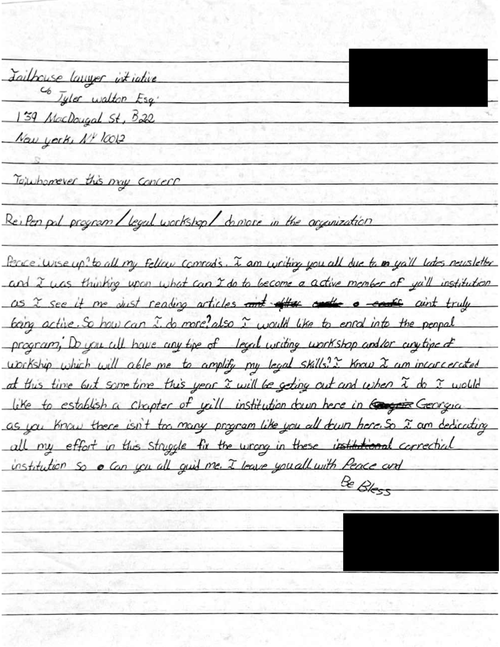 Jailhouse lawyer intiative
c/o Tyler walton Esq.
139 MacDougal St, B22
New york, NY 10012
To:whomever this may concern
Re: Pen pal program/legal workshop/domore in the organization
Peace: wise up? to all my fellow comrads. I am writing you all due to ya'll lates newsletter
and I was thinking upon what can I do to become a active member of ya'll institution
as I see it me Just reading articles aint truly
being active. So how can I do more? also I would like to enrol into the penpal
program; Do you all have any tipe of legal writing workshop and/or any tipe of
workship which will able me to amplify my legal skills? I know I am incarcerated
at this time but sometime this year I will be geting out and when I do I would
like to establish a chapter of ya'll institution down here in Georgia
as you know there isn't too many program like you all down here. So I am dedicating
all my effort in this struggle fix the wrong in these correctial
institution so can you all guid me. I leave you all with Peace and
Be Bless